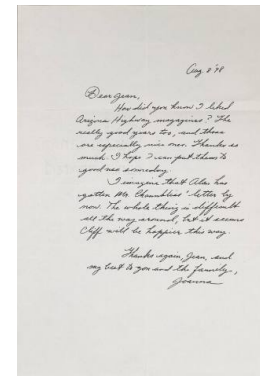 Aug 8 '78
Dear Jean,
How did you know I liked
Arizona Highway magazines? The
really good years too, and those
are especially nice ones. Thanks so
much. I hope I can put them to
good use someday.
I imagine that Alan has
gotten Mr. Chambless' letter by
now. The whole thing is difficult
all the way around, but it seems
Cliff will be happier this way.
Thanks again, Jean, and
my best to you and the family,
Joanna